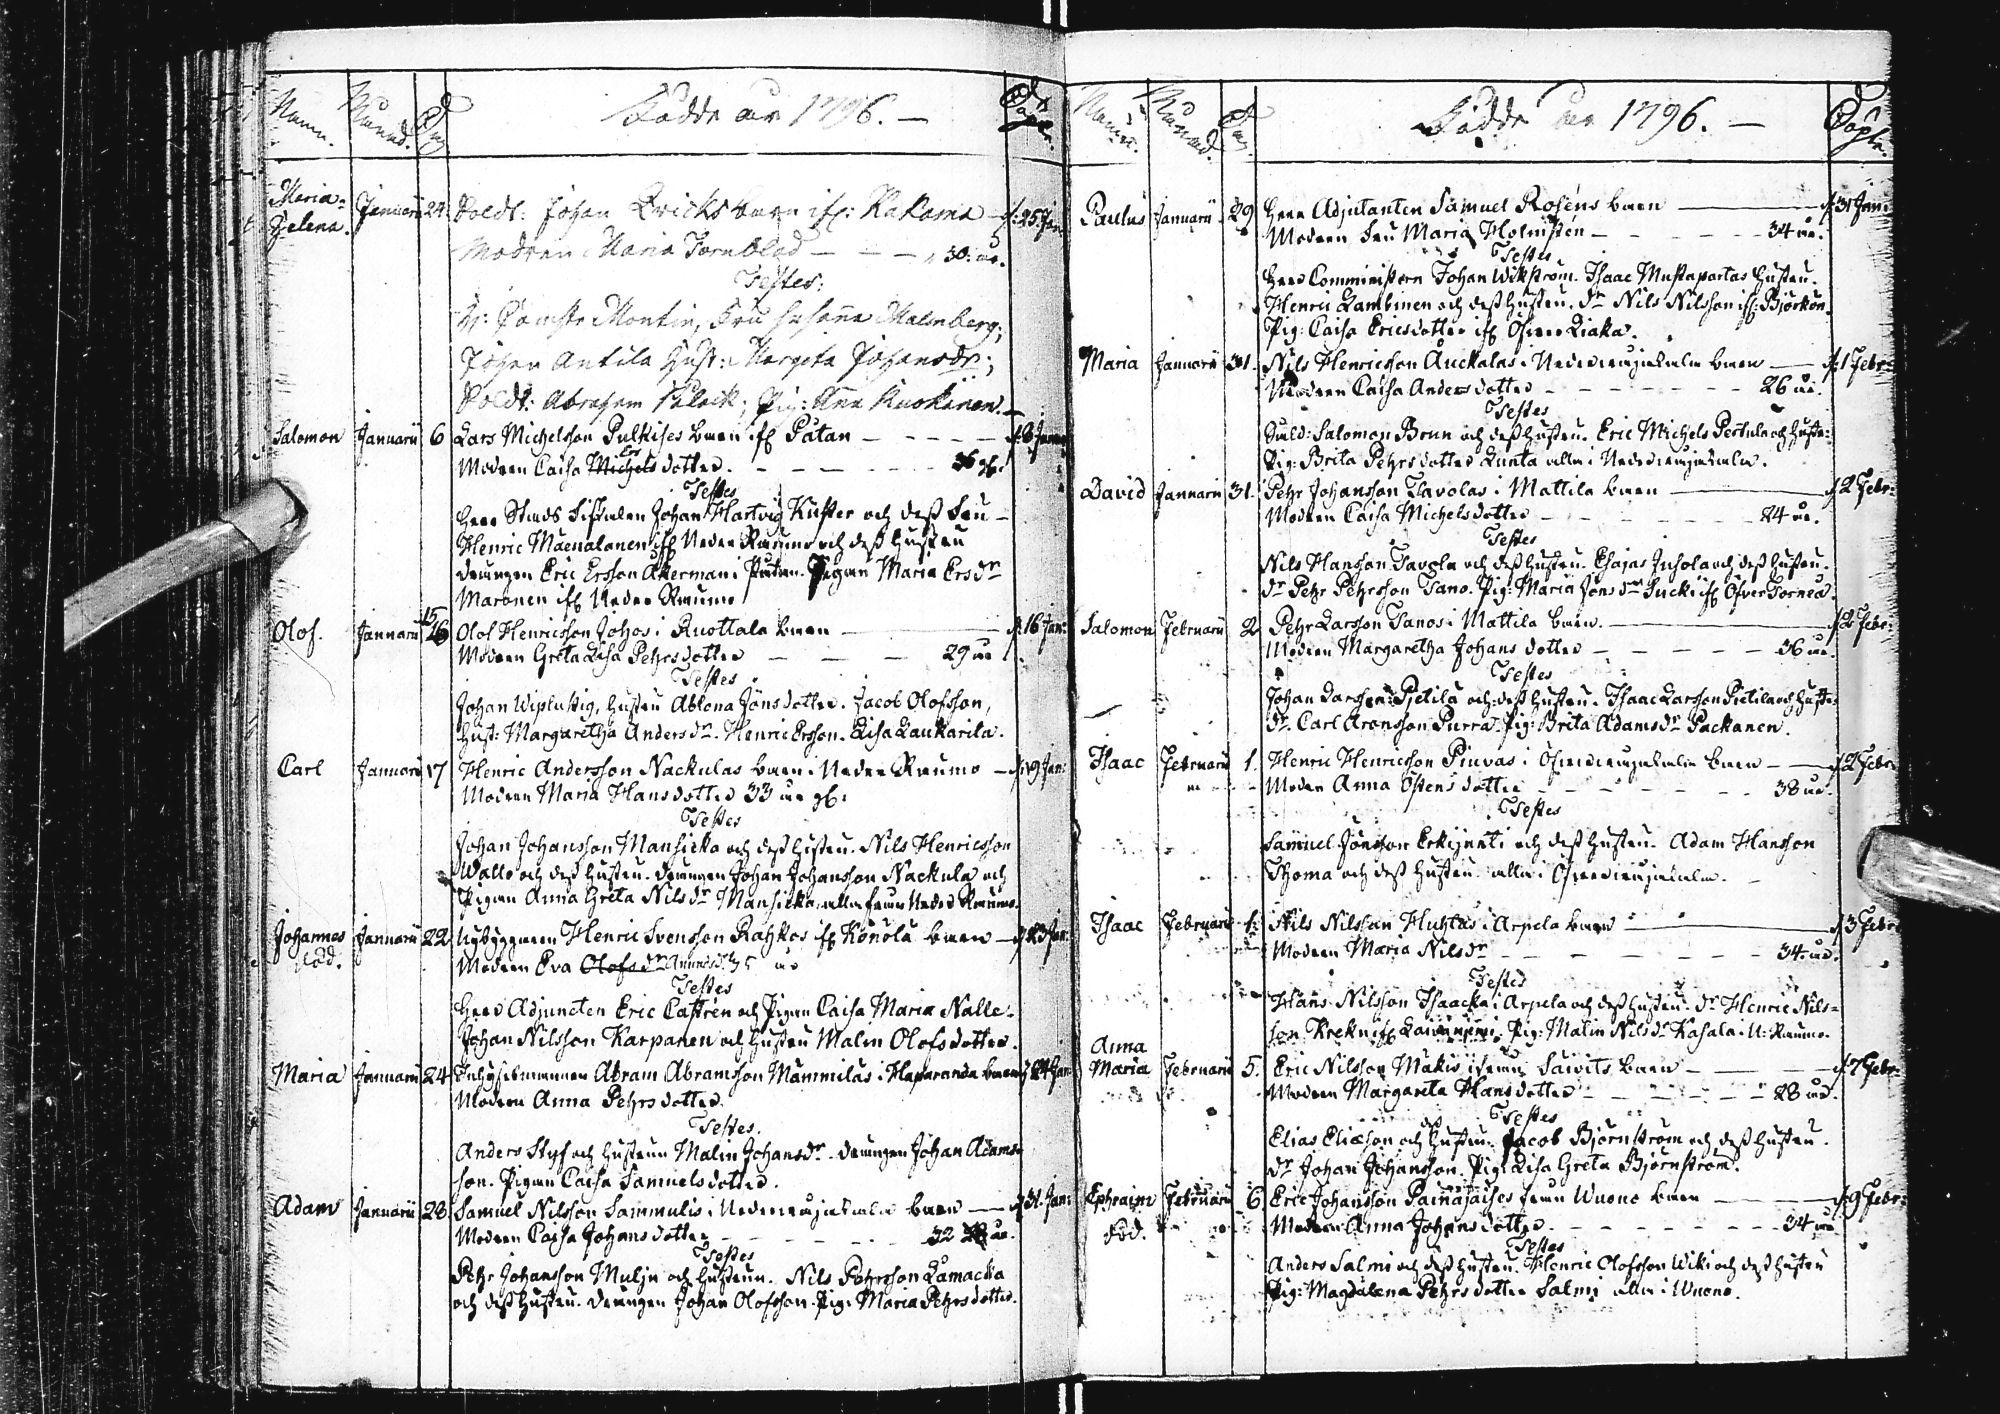 Namn. Månad. Dag Födde år 1796. — Döpte.
Maria Helena. Januarii 24. Soldt: Johan Ericks barn ifr: Kakama d: 25 Jan:
Modren Maria Tornblad — — — 30: år.
Testes:
Johan Antila Hust: Margeta Johansdr;
Soldt: Abraham Palack; Pig: Anna Ruokanen. —
Salomon Januarii 6 Lars Michelsson Pulkises barn ifr Pätan — — — — d: 8 Janua
Modren Caisa Michels Ers dotter. — — — — 36 gl.
Testes
Herr Stads Fiskalen Johan Hartvig Küster och dess Fru —
Henric Maenalanen ifr Neder Raumo och dess hustru
Drängen Eric Ersson Åkerman i Pätan. Pigan Maria Ersdr
Maronen ifr Neder Raumo
Olof. Januarii 15 Olof Henricsson Johos i Ruottala barn — d: 16 Jan:
Modren Greta Lisa Pehrsdotter — — — 29 år
Testes
Johan Wiplustig, hustru Ablona Jönsdotter. Jacob Olofsson,
Hust: Margaretha Andersdr. Henric Ersson. Lisa Laukarila.
Carl Januarii 17 Henric Andersson Nackulas barn i Neder Raumo — d: 19 Jan:
Modren Maria Hansdotter 33 år gl:
Testes
Johan Johansson Mansicka och dess hustru. Nils Henricsson
Wallo och dess hustru. Drängen Johan Johansson Nackula och
Pigan Anna Greta Nilsdr Mansicka, alla från Neder Raumo.
Johannes död. Januarii 22 Nybyggaren Henric Svensson Rahkos ifr Konola barn — d: 23 Jan:
Modren Eva Olofsdr Anundsd. 35 år
Testes
Herr Adjuncten Eric Castrén och Pigan Caisa Maria Nalle.
Johan Nilsson Karpanen och hustru Malin Olofsdotter.
Maria Januarii 24 Inhysesmannen Abram Abramsson Mammilas i Haparanda barn d: 24 Jan:
Modren Anna Pehrsdotter.
Testes.
Anders Styf och hustrun Malin Johansdr. Drängen Johan Adams-
son. Pigan Caisa Samuelsdotter.
Adam Januarii 28 Samuel Nilsson Sammulis i Nedervojakala barn — d: 31 Jan:
Modren Caisa Johansdotter — — — 32 år.
Testes
Pehr Johansson Mulju och hustrun. Nils Pehrsson Lamacka
och dess hustru. Drängen Johan Olofsson. Pig: Maria Pehrsdotter.
Namn. Månad. Dag. Födde år 1796. — Döpte.
Paulus Januarii 29 Herr Adjutanten Samuel Roséns barn — d: 31 Jan:
Modren Fru Maria Holmstén — — — — 34 år.
Testes
Herr Comministern Johan Wikström. Isaac Mustaparta's hustru.
Henric Lambinen och dess hustru. Dr Nils Nilsson ifr Björkön.
Pig: Caisa Ericsdotter ifr Öfver Liaka.
Maria Januarii 31. Nils Henricsson Auckalas i Nedervojakala barn — d: 1 Febr:
Modren Caisa Andersdotter — — — — 26 år.
Testes
Sold: Salomon Brun och dess hustru. Eric Michels Pertula och hustr:
Pig: Brita Pehrsdotter Lunta alla i Nedervojakala.
David Januarii 31. Pehr Johansson Tavolas i Mattila barn — d: 2 Febr:
Modren Caisa Michelsdotter — — — — 24 år.
Testes
Nils Hansson Tavola och dess hustru. Esajas Juhola och dess hustru.
Dr Pehr Pehrsson Tano. Pig: Maria Jönsdr Sucki ifr Öfver Torneå.
Salomon Februarii 2 Pehr Larsson Tanos i Mattila barn. — d: 2 Febr:
Modren Margaretha Johansdotter — — — — 36 år.
Testes
Johan Larsson Pietilä och dess hustru. Isaac Larsson Pietila och hustr:
Dr Carl Aronsson Purra. Pig: Brita Adamsdr Packanen.
Isaac Februarii 1. Henric Henricsson Pinvas i Öfvervojakala barn — d: 2 Febr:
Modren Anna Östensdotter — — — — 38 år.
Testes
Samuel Jönsson Erkijunti och dess hustru. Adam Hansson
Thoma och dess hustru alla i Öfvervojakala.
Isaac Februarii 1: Nils Nilsson Huhtas i Arpela barn — d: 3 Febr:
Modren Maria Nilsdr — — — — 34: år.
Testes
Hans Nilsson Isaacka i Arpela och dess hustru. Dr Henric Nils-
son Krekn ifr Laivaniemi. Pig: Malin Nilsdr Kasala i N: Raumo.
Anna Maria Februarii 5. Eric Nilsson Mäkis ifrån Saivits barn — d: 7 Febr:
Modren Margareta Hansdotter — — — — 28 år.
Testes
Elias Eliæson och dess hustru. Jacob Björnström och dess hustru.
Dr Johan Johansson. Pig: Lisa Greta Björnström.
Ephraim död. Februarii 6. Eric Johansson Painajaises från Wuono barn — d: 9 Febr:
Modren Anna Johansdotter — — — — 34 år
Testes
Anders Salmi och dess hustru. Henric Olofsson Wiki och dess hustru
Pig: Magdalena Pehrsdotter Salmi alla i Wuono.